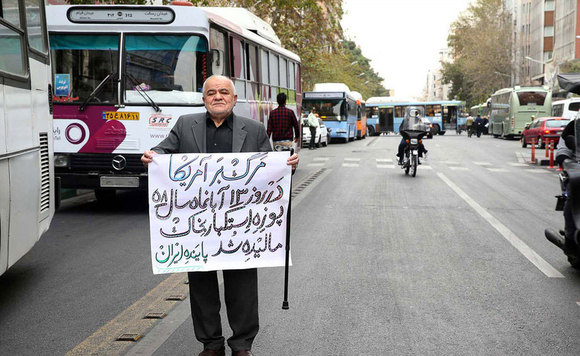 مرگ بر آمریکا
در روز ۱۳ آبانماه سال ۵۸
پوزه استکبار بخاک
مالیده شد پاینده ایران
SRC